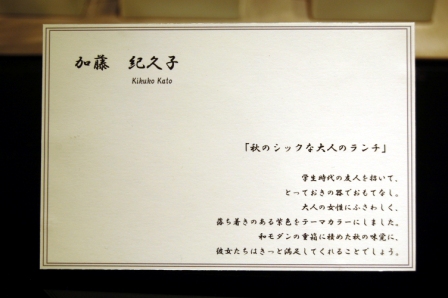 加藤　紀久子
Kikuko Kato
「秋のシックな大人のランチ」
学生時代の友人を招いて、
とっておきの器でおもてなし。
大人の女性にふさわしく、
落ち着きのある紫色をテーマカラーにしました。
和モダンの重箱に積めた秋の味覚に、
彼女たちはきっと満足してくれることでしょう。